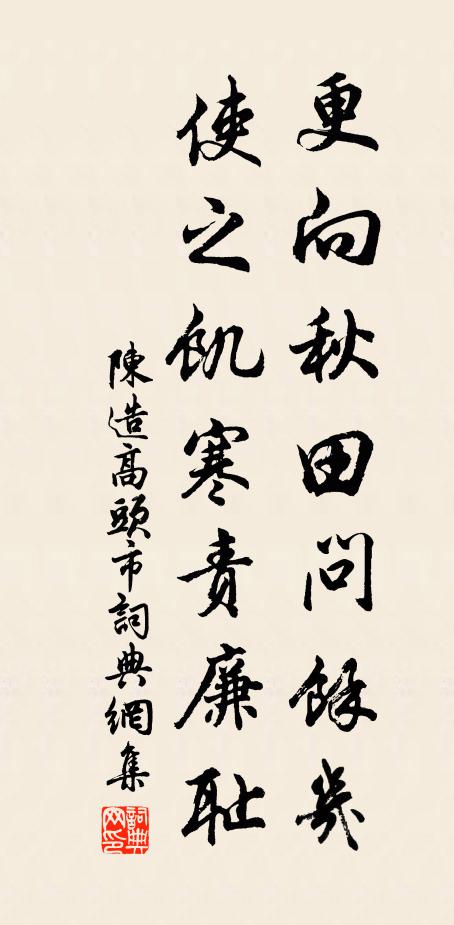 更向秋田問餘幾
使之飢寒責廉耻
陳造高頭市詞典網集
詞典網印